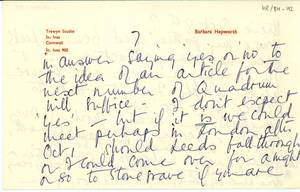 Trewyn Studio
St. Ives
Cornwall
St. Ives
Barbara Hepworth
7
in answer saying yes or no to
the idea of an article for the
next number of Quadrum
will suffice - I don't expect
'yes' - but if it is we could
meet perhaps in London after
Oct. Should Leeds fall through
or I could come over for a night
or so to Stonegrave if you are